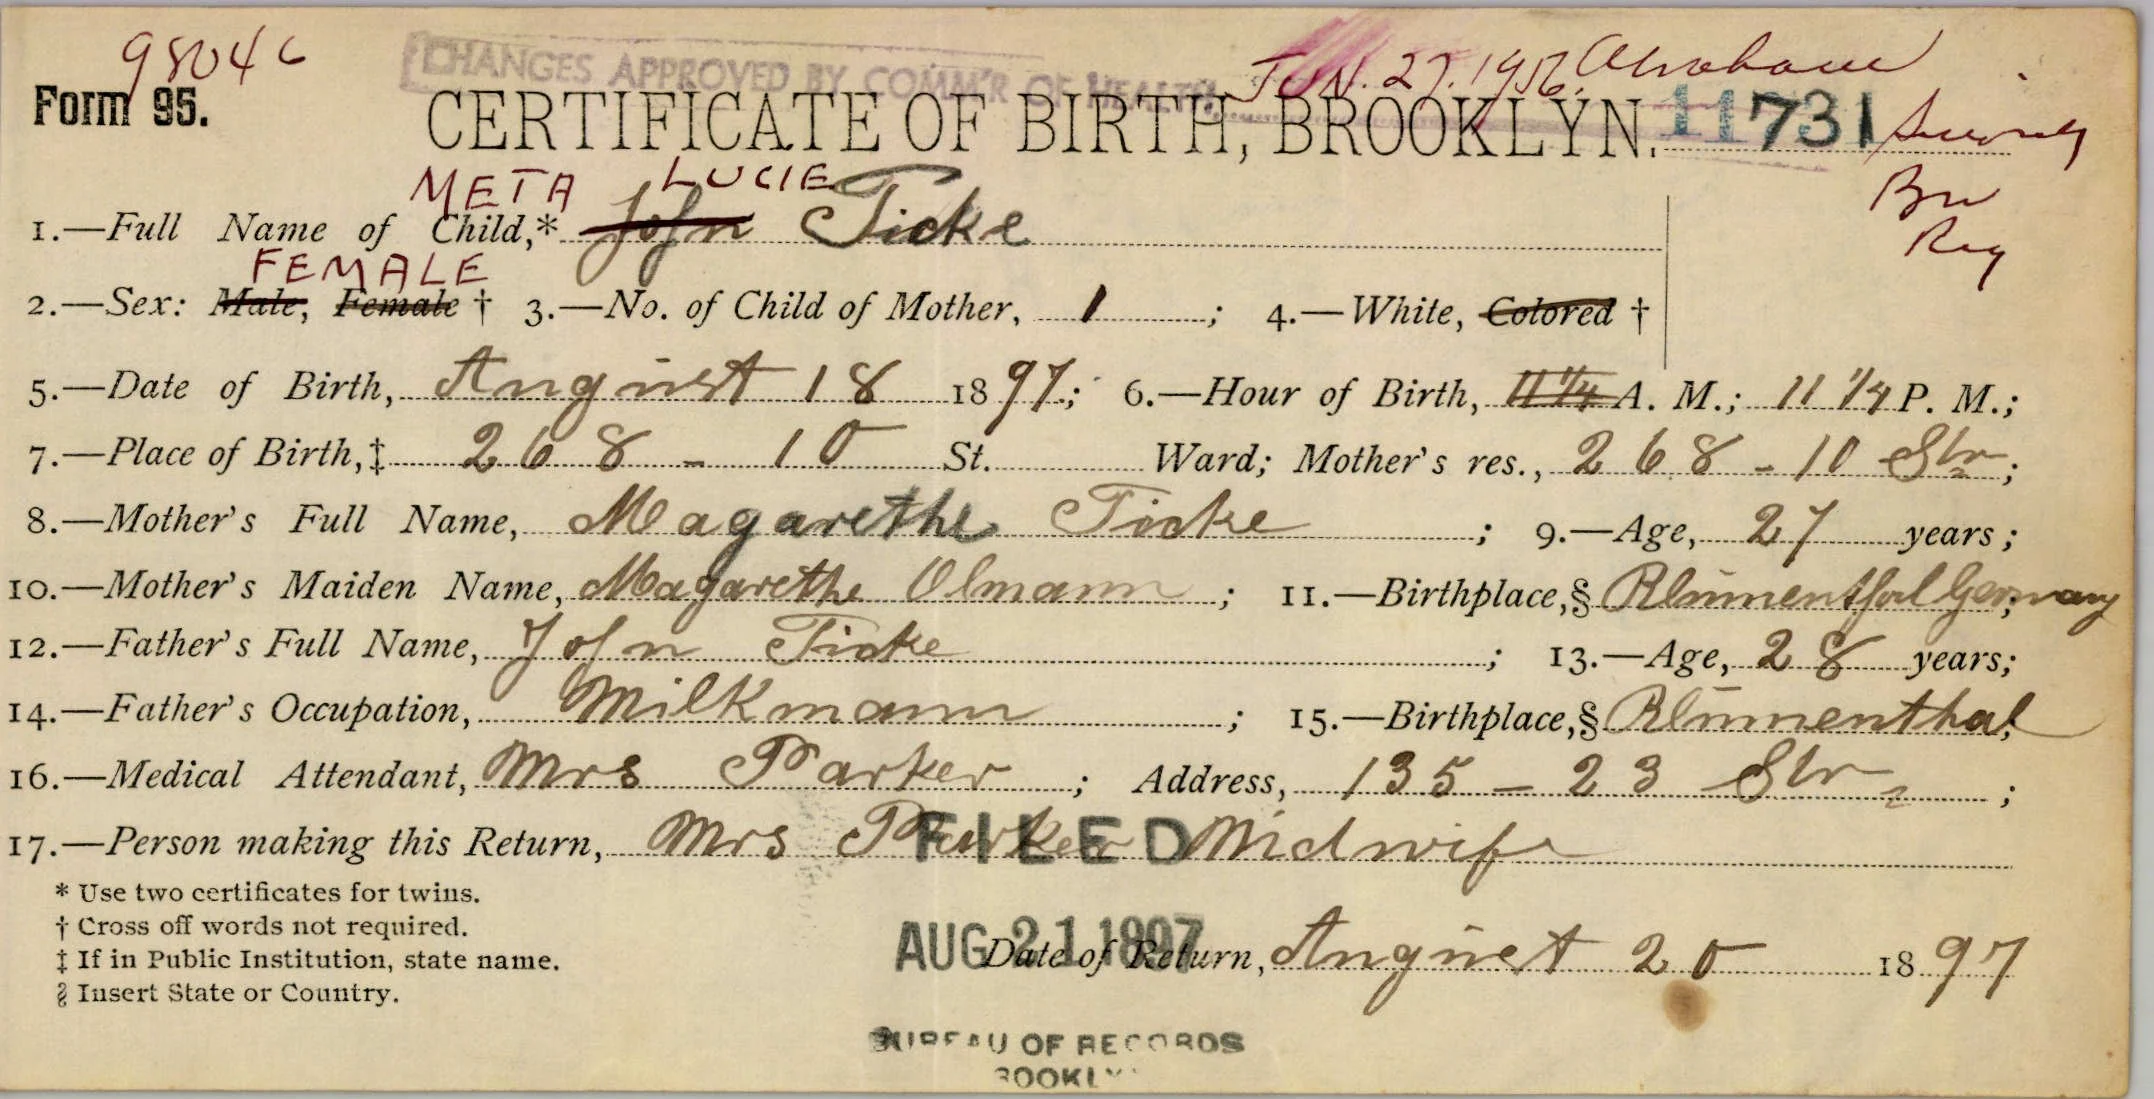 98046
CHANGES APPROVED BY COMM'R OF HEALTH JUN. 27. 1956. Abraham
Form 95.
CERTIFICATE OF BIRTH, BROOKLYN. 11731
META LUCIE
1.—Full Name of Child,* John Ticke
FEMALE
2.—Sex: Male, Female † 3.—No. of Child of Mother, 1 ; 4.—White, Colored †
5.—Date of Birth, August 18 1897.; 6.—Hour of Birth, 11 1/4 A. M.; 11 1/4 P. M.;
7.—Place of Birth,‡ 268 - 10 St. Ward; Mother's res., 268 - 10 Str ;
8.—Mother's Full Name, Magarethe Ticke ; 9.—Age, 27 years ;
10.—Mother's Maiden Name, Magarethe Olmann ; 11.—Birthplace,§ Blumenthal Germany ;
12.—Father's Full Name, John Ticke ; 13.—Age, 28 years;
14.—Father's Occupation, Milkmann ; 15.—Birthplace,§ Blumenthal ;
16.—Medical Attendant, Mrs Parker ; Address, 135 - 23 Str. ;
17.—Person making this Return, Mrs Parker Midwife
FILED
* Use two certificates for twins.
† Cross off words not required.
‡ If in Public Institution, state name.
§ Insert State or Country.
AUG 21 1897
Date of Return, August 20 1897
BUREAU OF RECORDS
BROOKLYN